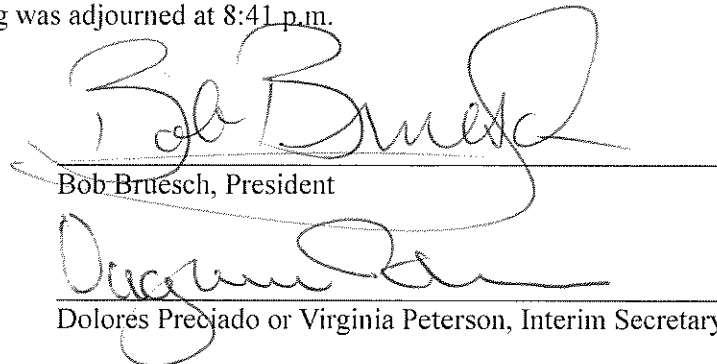 g was adjourned at 8:41 p.m.
Bob Bruesch
Bob Bruesch, President
Dolores Preciado or Virginia Peterson, Interim Secretary